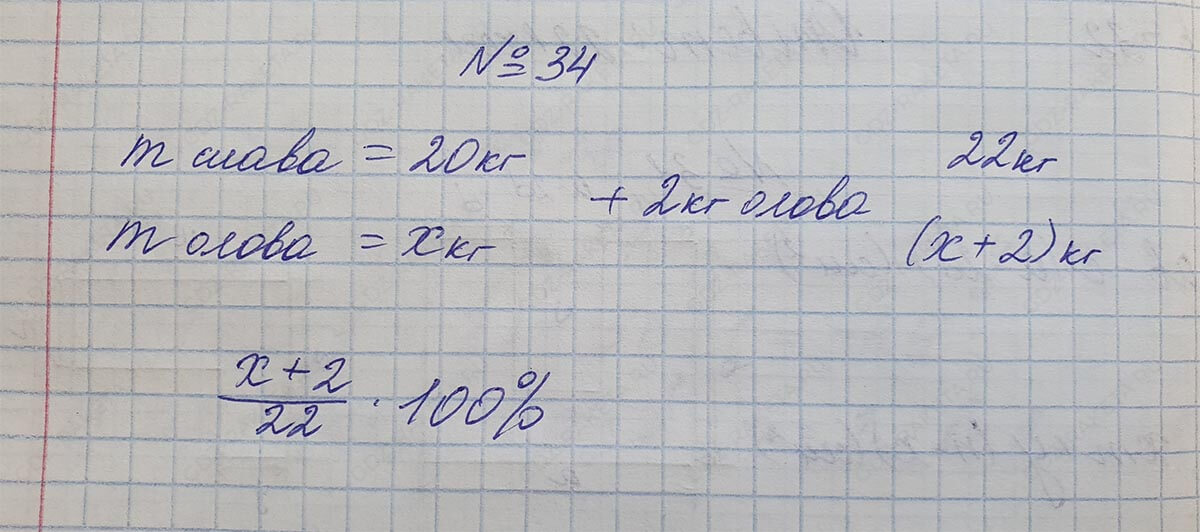 № 34
m сплава = 20кг
+ 2кг олова
22кг
m олова = xкг
(x+2)кг
x+2
22
· 100%